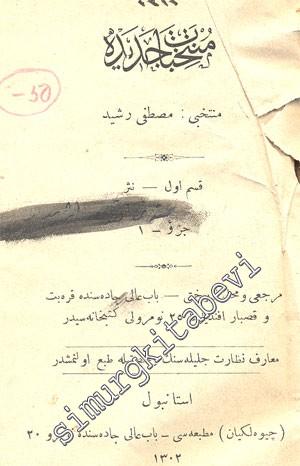 منتخبات جدیده
منتخبی : مصطفی رشید
50 —
قسم اول — نثر
جزؤ — ۱
مرجعی و — باب عالی جاده سنده قره بت
و قصبار نومرولی کتبخانه سیدر
معارف نظارت جلیله سنك طبع اولنمشدر
استانبول
(چیوه لکیان) مطبعه سی — باب عالی جاده سنده ۲۰
۱۳۰۲
simurgkitabevi